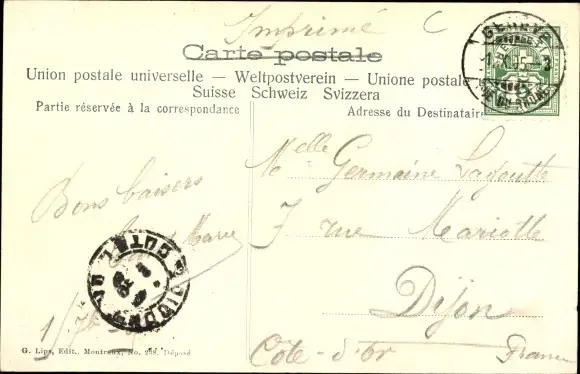 Imprimé C
Carte postale
Union postale universelle — Weltpostverein — Unione postale
Suisse Schweiz Svizzera
Partie réservée à la correspondance
Adresse du Destinataire
GENÈVE
Bons baisers
Melle Germaine Lagoutte
7 rue Mariotte
Dijon
Côte-d'Or France
G. Lips, Edit., Montreux, No. 288. Déposé